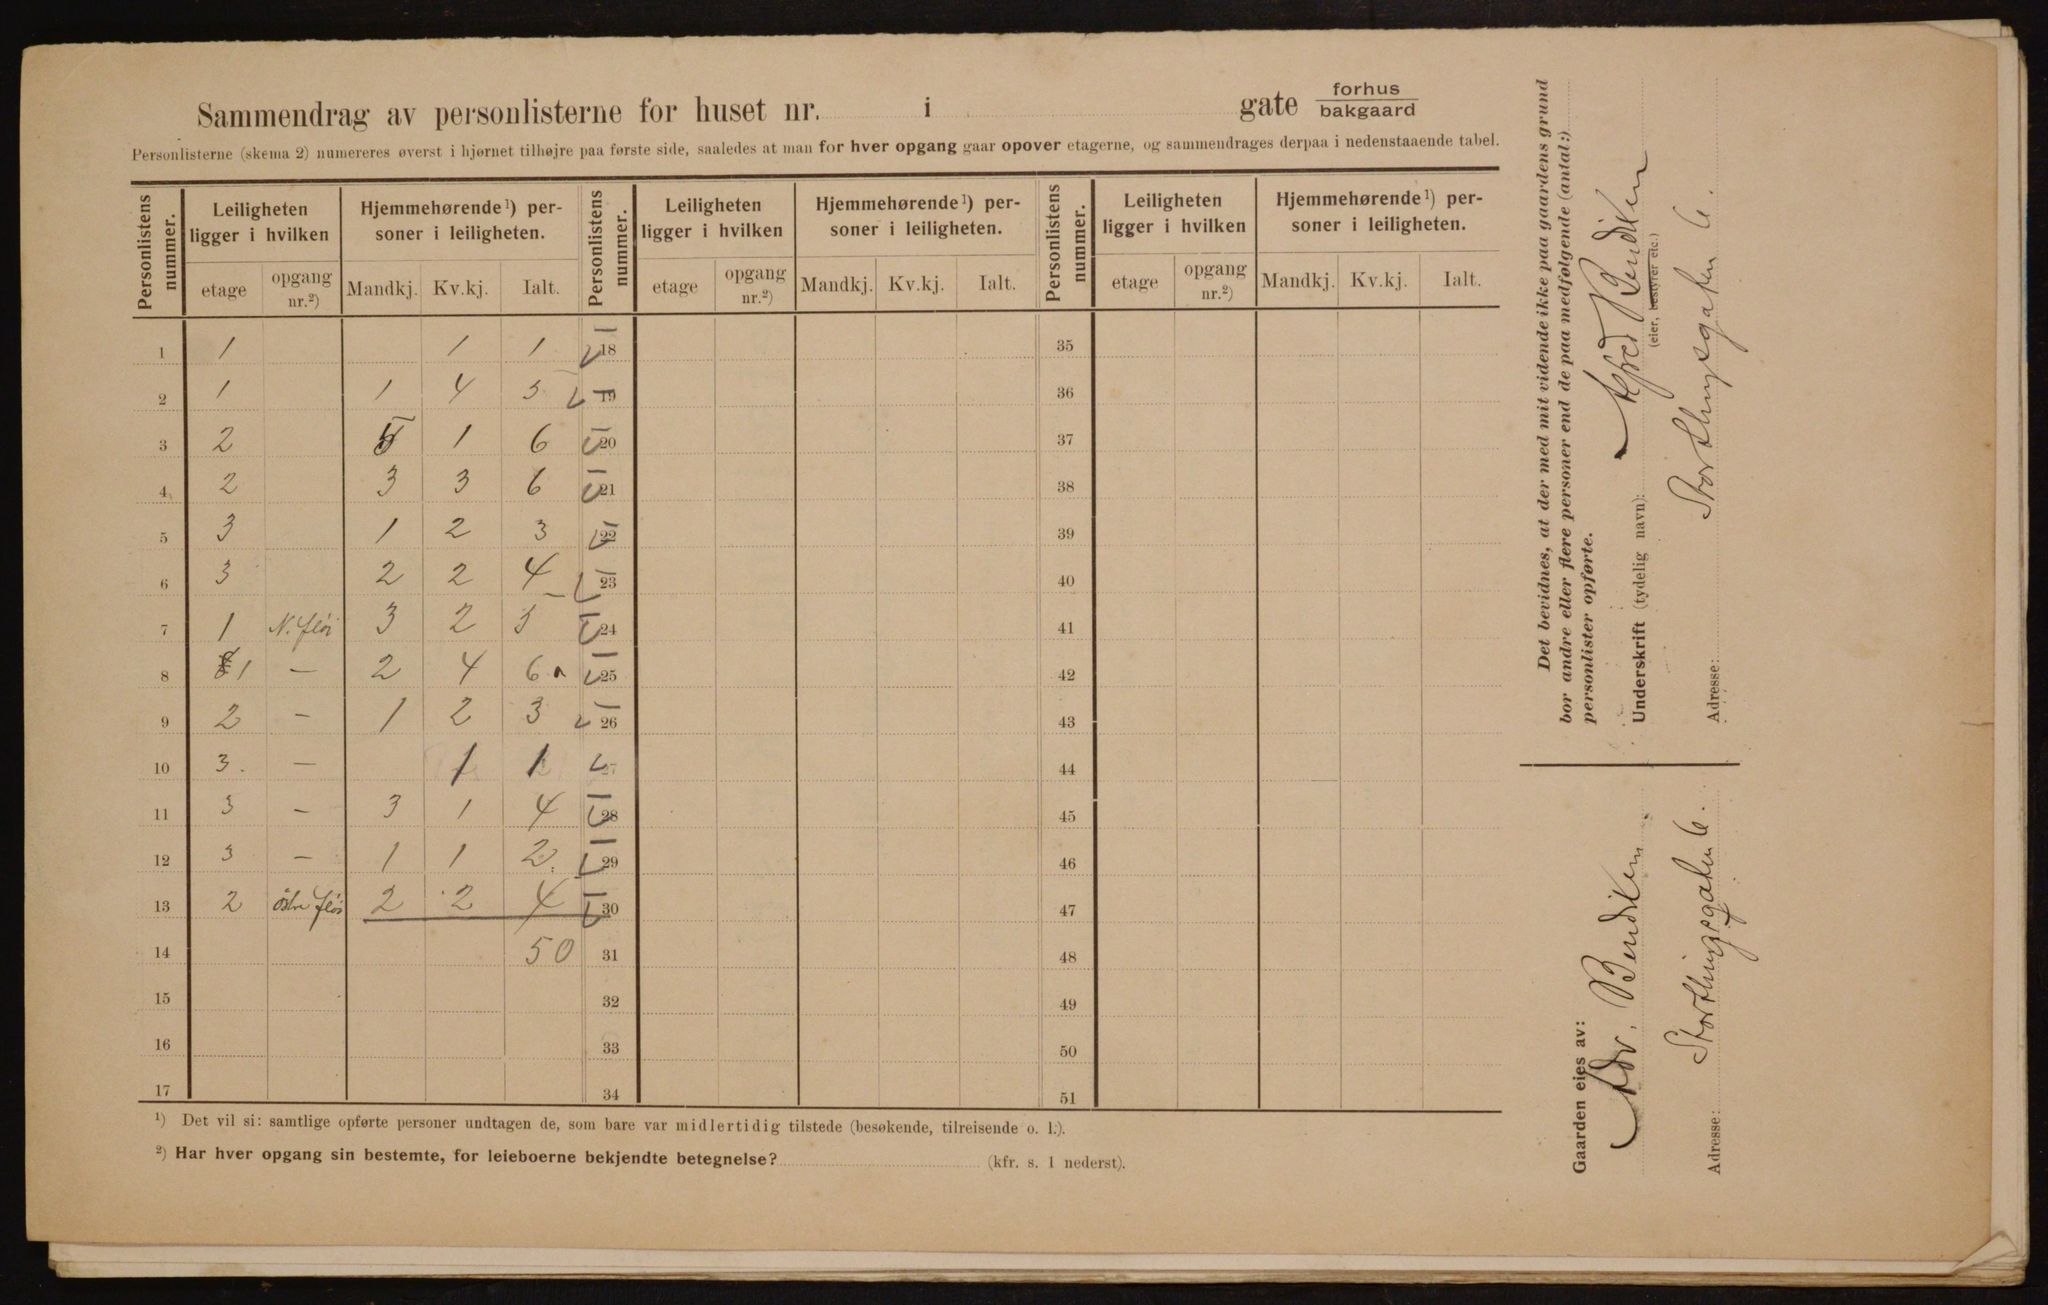 Sammendrag av personlisterne for huset nr. i gate forhus bakgaard
Personlisterne (skema 2) numereres øverst i hjørnet tilhøjre paa første side, saaledes at man for hver opgang gaar opover etagerne, og sammendrages derpaa i nedenstaaende tabel.
Personlistens nummer. Leiligheten ligger i hvilken Hjemmehørende 1) personer i leiligheten. Personlistens nummer. Leiligheten ligger i hvilken Hjemmehørende 1) personer i leiligheten. Personlistens nummer. Leiligheten ligger i hvilken Hjemmehørende 1) personer i leiligheten.
etage opgang nr.2) Mandkj. Kv.kj. Ialt. etage opgang nr.2) Mandkj. Kv.kj. Ialt. etage opgang nr.2) Mandkj. Kv.kj. Ialt.
1 1 1 1 18 35
2 1 1 4 5 19 36
3 2 5 1 6 20 37
4 2 3 3 6 21 38
5 3 1 2 3 22 39
6 3 2 2 4 23 40
7 1 N. fløi 3 2 5 24 41
8 1 — 2 4 6 25 42
9 2 — 1 2 3 26 43
10 3. — 1 1 27 44
11 3 — 3 1 4 28 45
12 3 — 1 1 2. 29 46
13 2 östre fløi 2 2 4 30 47
14 50 31 48
15 32 49
16 33 50
17 34 51
1) Det vil si: samtlige opførte personer undtagen de, som bare var midlertidig tilstede (besøkende, tilreisende o. l.).
2) Har hver opgang sin bestemte, for leieboerne bekjendte betegnelse? (kfr. s. 1 nederst).
Det bevidnes, at der med mit vidende ikke paa gaardens grund
bor andre eller flere personer end de paa medfølgende (antal:)
personlister opførte.
Underskrift (tydelig navn): Alfred Bendiken
(eier, bestyrer etc.)
Adresse: Storthingsgaten 6.
Gaarden eies av:
Adv. Bendiken
Adresse: Storthingsgaten 6.